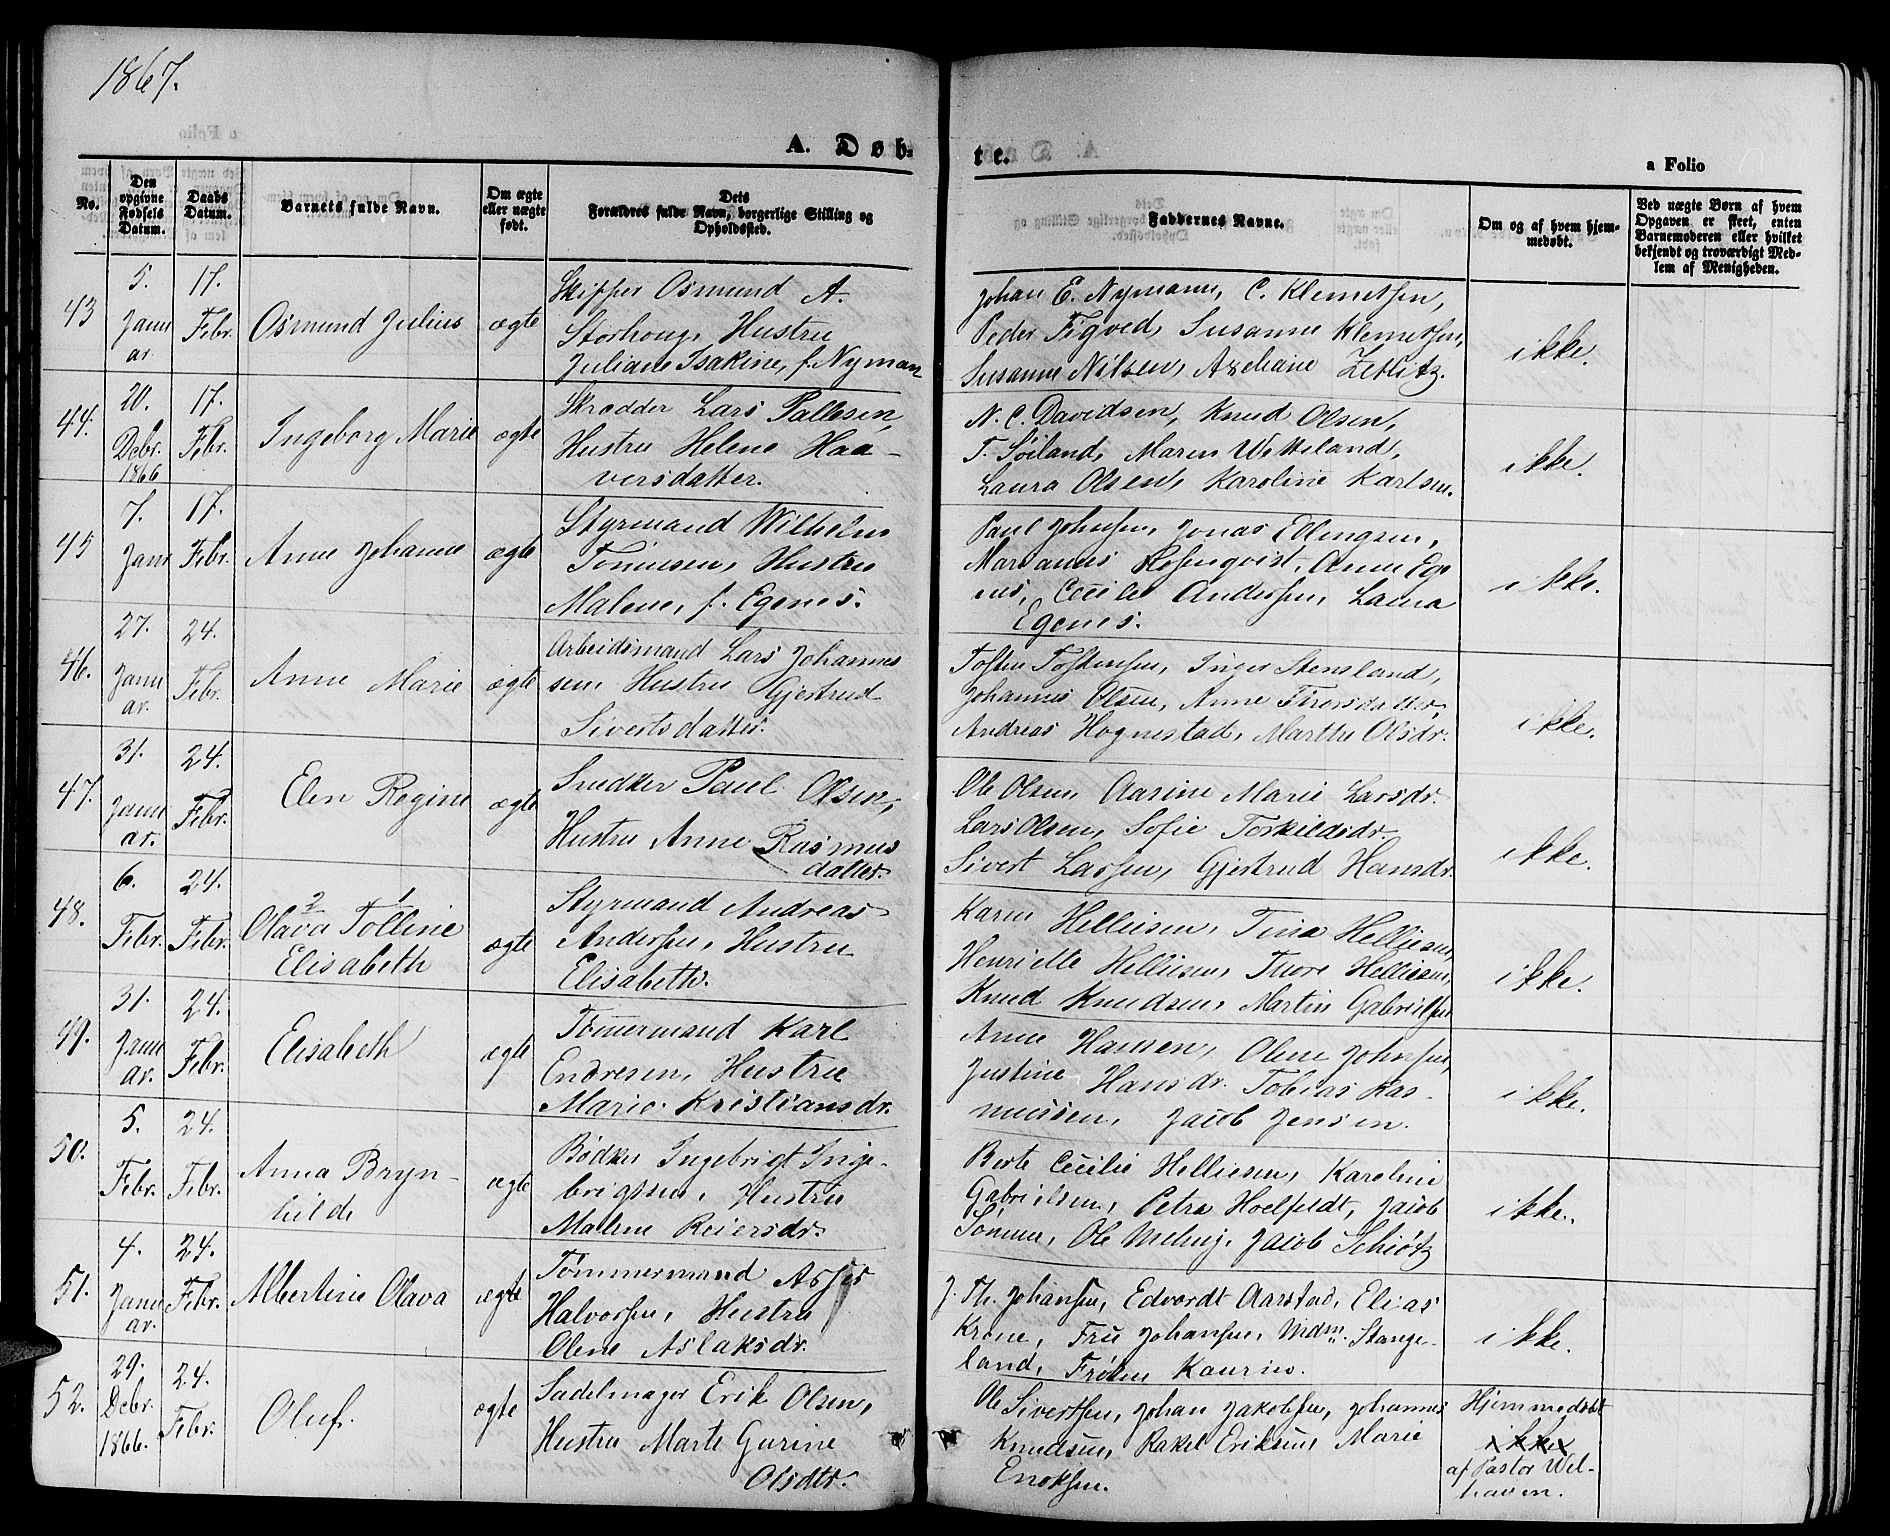 1867.
A. Døb-
te.
a Folio
No.
Den opgivne Fødsels Datum.
Daabs Datum.
Barnets fulde Navn.
Om ægte eller uægte født.
Dets Forældres fulde Navn, borgerlige Stilling og Opholdssted.
Faddernes Navne.
Om og af hvem hjemmedøbt.
Ved uægte Børn af hvem Opgaven er skeet, enten Barnemoderen eller hvilket bekjendt og troværdigt Medlem af Menigheden.
43
5. Januar.
17. Febr.
Osmund Julius
ægte
Skipper Osmund A.
Storhoug, Hustru
Juliane Isakine, f. Nyman
Johan E. Nymann, C. Klemetsen,
Peder Figved, Susanne Klemetsen,
Susanne Nilsen, Axeliane Zetlitz.
ikke.
44.
20. Debr. 1866
17. Febr.
Ingeborg Marie
ægte
Skrædder Lars Pallesen,
Hustru Helene Haa-
versdatter.
N. C. Davidsen, Knud Olsen,
T. Soiland, Maren Wetteland,
Laura Olsen, Karoline Karlsen.
ikke.
45
7. Janu
17. Febr.
Anne Johanne
ægte
Styrmand Wilhelm
Tønnesen, Hustru
Malene, f. Egenes.
Paul Johnsen, Jonas Ellingsen,
Marianne Rosenqvist, Anne Ege
nes, Cecilie Andersen, Laura
Egenes.
ikke.
46.
27. Januar.
24. Febr.
Anne Marie
ægte
Arbeidsmand Lars Johannes
sen Hustru Gjertrud
Sivertsdatter.
Tosten Tostensen, Inger Stensland,
Johannes Olsen, Anne Torersdatter,
Andreas Hognestad, Marthe Olsdr.
ikke.
47.
31. Januar.
24. Febr.
Elen Regine
ægte
Snedker Paul Olsen,
Hustru Anne Rasmus
datter.
Ole Olsen, Aarine Marie Larsdr.
Lars Olsen, Sofie Torkildsdr.
Sivert Larsen, Gjertrud Hansdr.
ikke.
48.
6. Febr.
24. Febr.
2 1
Olava Tolline
Elisabeth
ægte
Styrmand Andreas
Andersen, Hustru
Elisabeth.
Karen Helliesen, Tina Helliesen,
Henriette Helliesen, Tuore Helliesen,
Knud Knudsen, Martin Gabrielsen
ikke.
49.
31. Januar.
24. Febr.
Elisabeth
ægte
Tømermand Karl
Endresen, Hustru
Marie Kristiansdr.
Anne Hansen, Olene Johnsen,
Justine Hansdr. Tobias Ras-
mussen, Jacob Jensen.
ikke.
50.
5. Febr.
24. Febr.
Anna Bryn-
hilde
ægte
Bødker Ingebrigt Inge-
brigtsen, Hustru
Malene Reiersdr.
Berte Cecilie Helliesen, Karoline
Gabrielsen, Petra Hoelfeldt, Jacob
Sømme, Ole Meling, Jacob Schiøtz
ikke.
51.
4. Januar.
24. Febr.
Albertine Olava
ægte
Tømmermand Asser
Halvorsen, Hustru
Olene Aslaksdr.
J. Th. Johansen, Edvardt Aarstad, Elias
Krone, Fru Johansen, Mdm. Stange-
land, Frøken Kaurin.
ikke.
52.
29. Debr. 1866.
24. Febr.
Oluf.
ægte
Sadelmager Erik Olsen,
Hustru Marte Gurine
Olsdtr.
Ole Sivertsen, Johan Jakobsen, Johannes
Knudsen, Rakel Eriksen, Marie
Enoksen.
Hjemmedøbt
ikke
af Pastor Wel-
haven.